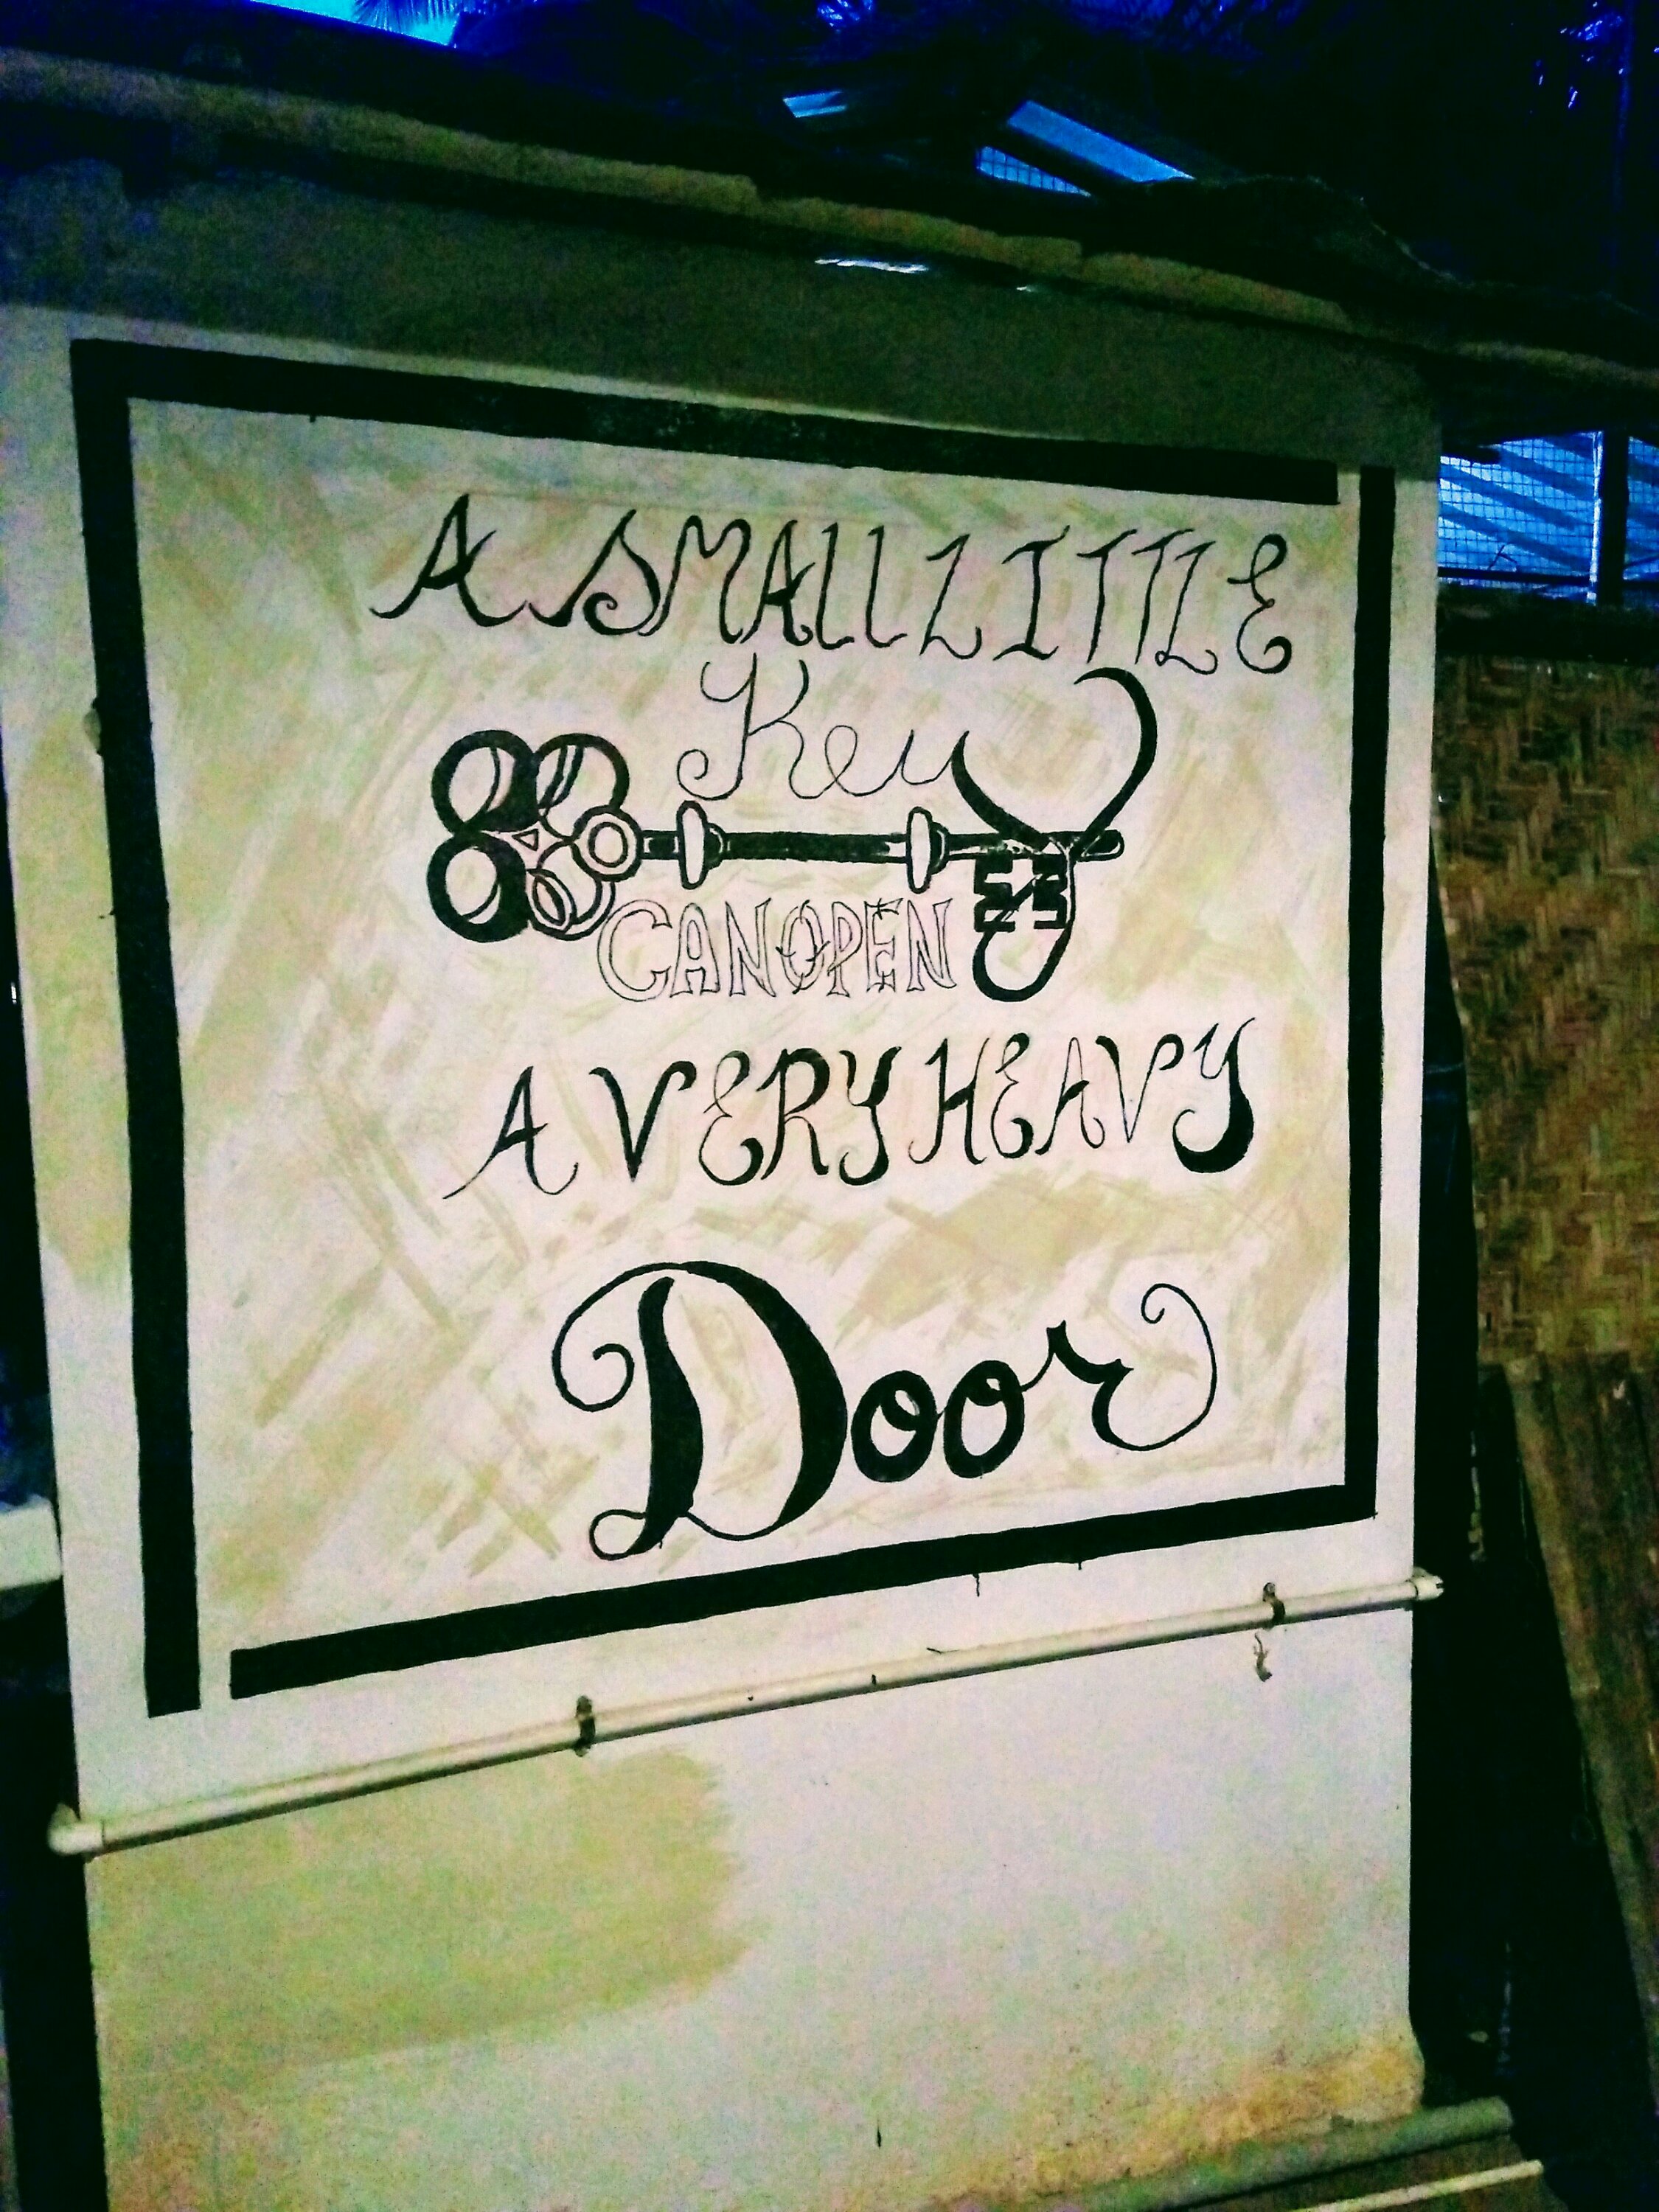 A SMALL LITTLE
Key
CAN OPEN
A VERY HEAVY
Door